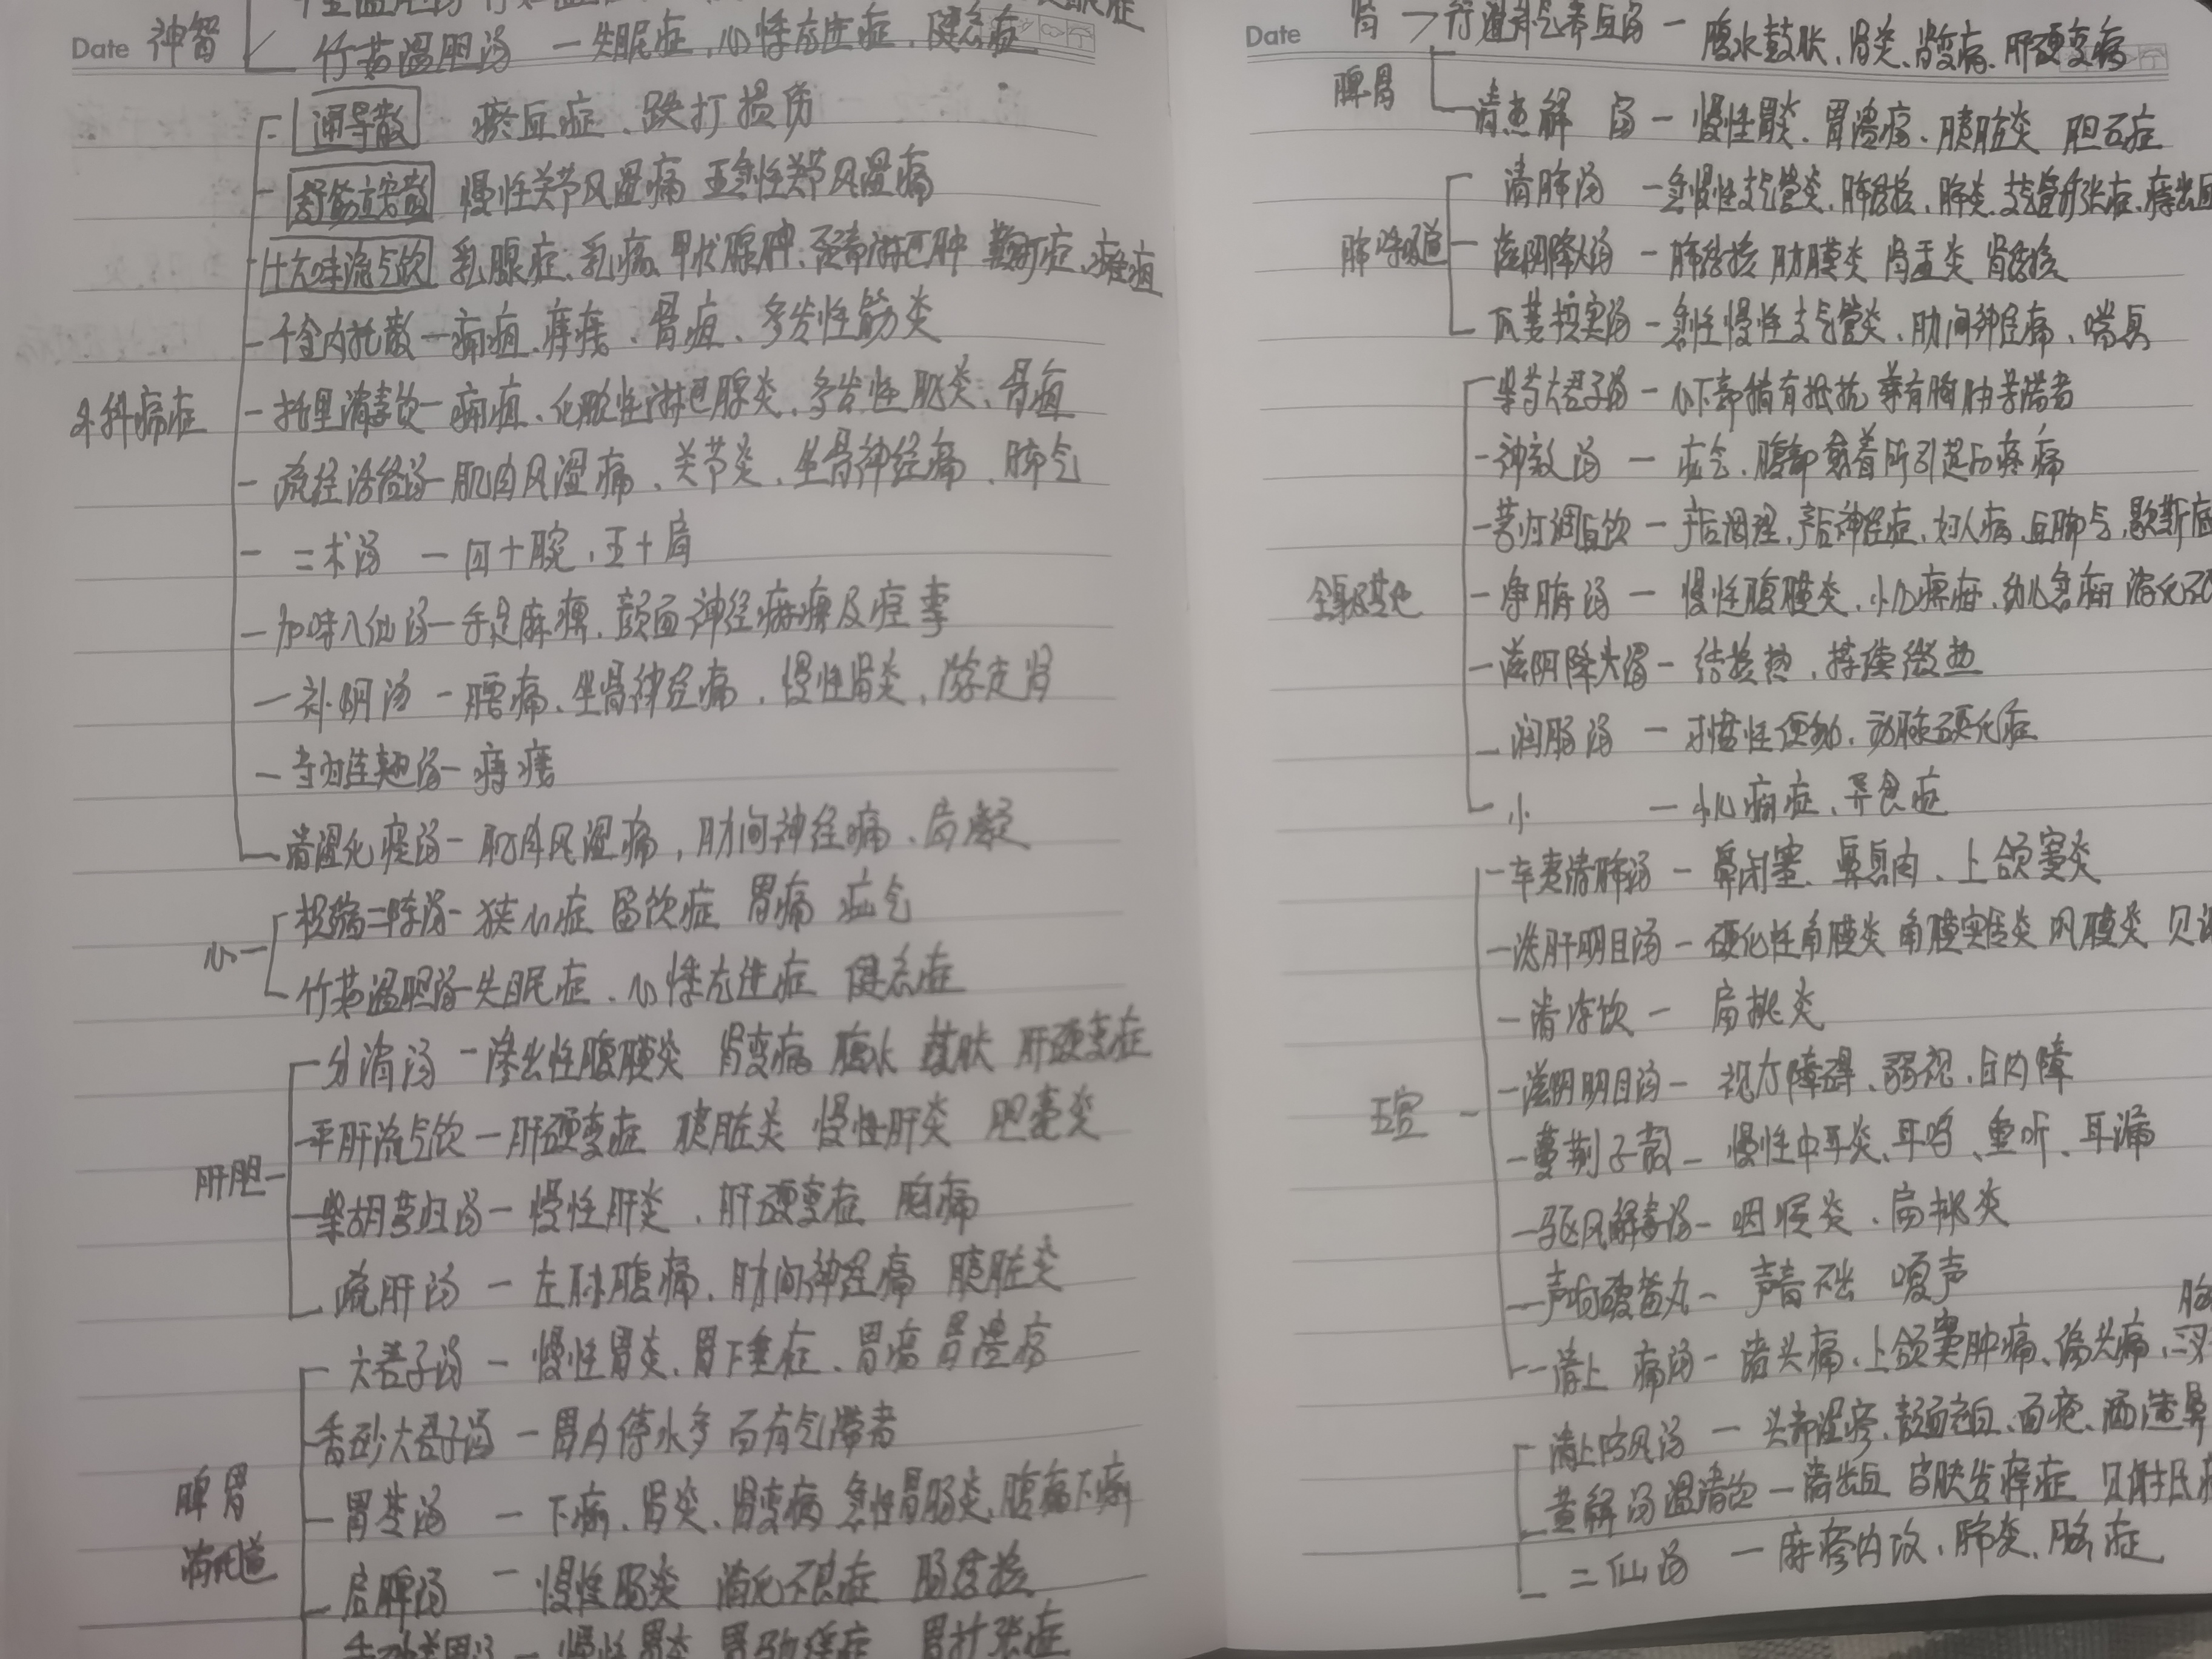 Date 神智
竹茹温胆汤 一 失眠症、心悸亢进症、健忘症
外科病症
通导散 瘀血症、跌打损伤
舒筋立安散 慢性关节风湿痛 亚急性关节风湿痛
十六味流气饮 乳腺症、乳癌、甲状腺肿、颈部淋巴肿 痈疽
千金内托散 一 痈疽、痔瘘、骨疽、多发性筋炎
托里消毒饮 一 痈疽、化脓性淋巴腺炎、多发性肌炎、骨疽
疏经活络汤 一 肌肉风湿痛、关节炎、坐骨神经痛、脚气
二术汤 一 四十腕、五十肩
加味八仙汤 一 手足麻痹、颜面神经麻痹及痉挛
补阴汤 一 腰痛、坐骨神经痛、慢性肾炎、游走肾
当归连翘汤 一 痔瘘
清湿化痰汤 一 肌肉风湿痛，肋间神经痛、肩凝
心 一
枳缩二陈汤 一 狭心症 留饮症 胃痛 疝气
竹茹温胆汤 一 失眠症、心悸亢进症 健忘症
肝胆 一
分消汤 一 渗出性腹膜炎 肾变病 腹水 鼓胀 肝硬变症
平肝流气饮 一 肝硬变症 胰脏炎 慢性肝炎 胆囊炎
柴胡芎归汤 一 慢性肝炎、肝硬变症 胸痛
疏肝汤 一 左胁腹痛、肋间神经痛 胰脏炎
脾胃
消化道
六君子汤 一 慢性胃炎、胃下垂症、胃癌 胃溃疡
香砂六君子汤 一 胃内停水多 而有气滞者
胃苓汤 一 下痢、肾炎、肾变病 急性胃肠炎、腹痛下痢
启脾汤 一 慢性肠炎 消化不良症 肠结核
慢性胃炎 胃扩张症
Date 肾 → 行湿补气养血汤 一 腹水鼓胀、肾炎、肾变病、肝硬变病
脾胃
清热解 汤 一 慢性胃炎、胃溃疡、胰脏炎 胆石症
肺呼吸道
清肺汤 一 急慢性支气管炎、肺结核、肺炎、支气管扩张症、
滋阴降火汤 一 肺结核 肋膜炎 肾盂炎 肾结核
瓜蒌枳实汤 一 急性慢性支气管炎、肋间神经痛、喘息
全身及其他
柴芍六君子汤 一 心下部稍有抵抗 兼有胸胁苦满者
神效汤 一 疝气、腹部粘着所引起的疼痛
芎归调血饮 一 产后调理、产后神经症、妇人病、血脚气、歇斯底
净腑汤 一 慢性腹膜炎、小儿
滋阴降火汤 一 结核热、持续微热
润肠汤 一 习惯性便秘、动脉硬化症
小 一 小儿痫症、异食症
五官 一
辛夷清肺汤 一 鼻闭塞、鼻息肉、上颌窦炎
洗肝明目汤 一 硬化性角膜炎 角膜实质炎 巩膜炎
清凉饮 一 扁桃炎
滋阴明目汤 一 视力障碍、弱视、白内障
蔓荆子散 一 慢性中耳炎、耳鸣、重听、耳漏
驱风解毒汤 一 咽喉炎、扁桃炎
声响破笛丸 一 声音不出 嗄声
清上 痛汤 一 诸头痛、上颌窦肿痛、偏头痛、
清上防风汤 一 头部湿疹、颜面充血、面疱、酒渣鼻
黄解汤温清饮 一 诸出血 皮肤发痒症
二仙汤 一 麻疹内攻、肺炎、脑症